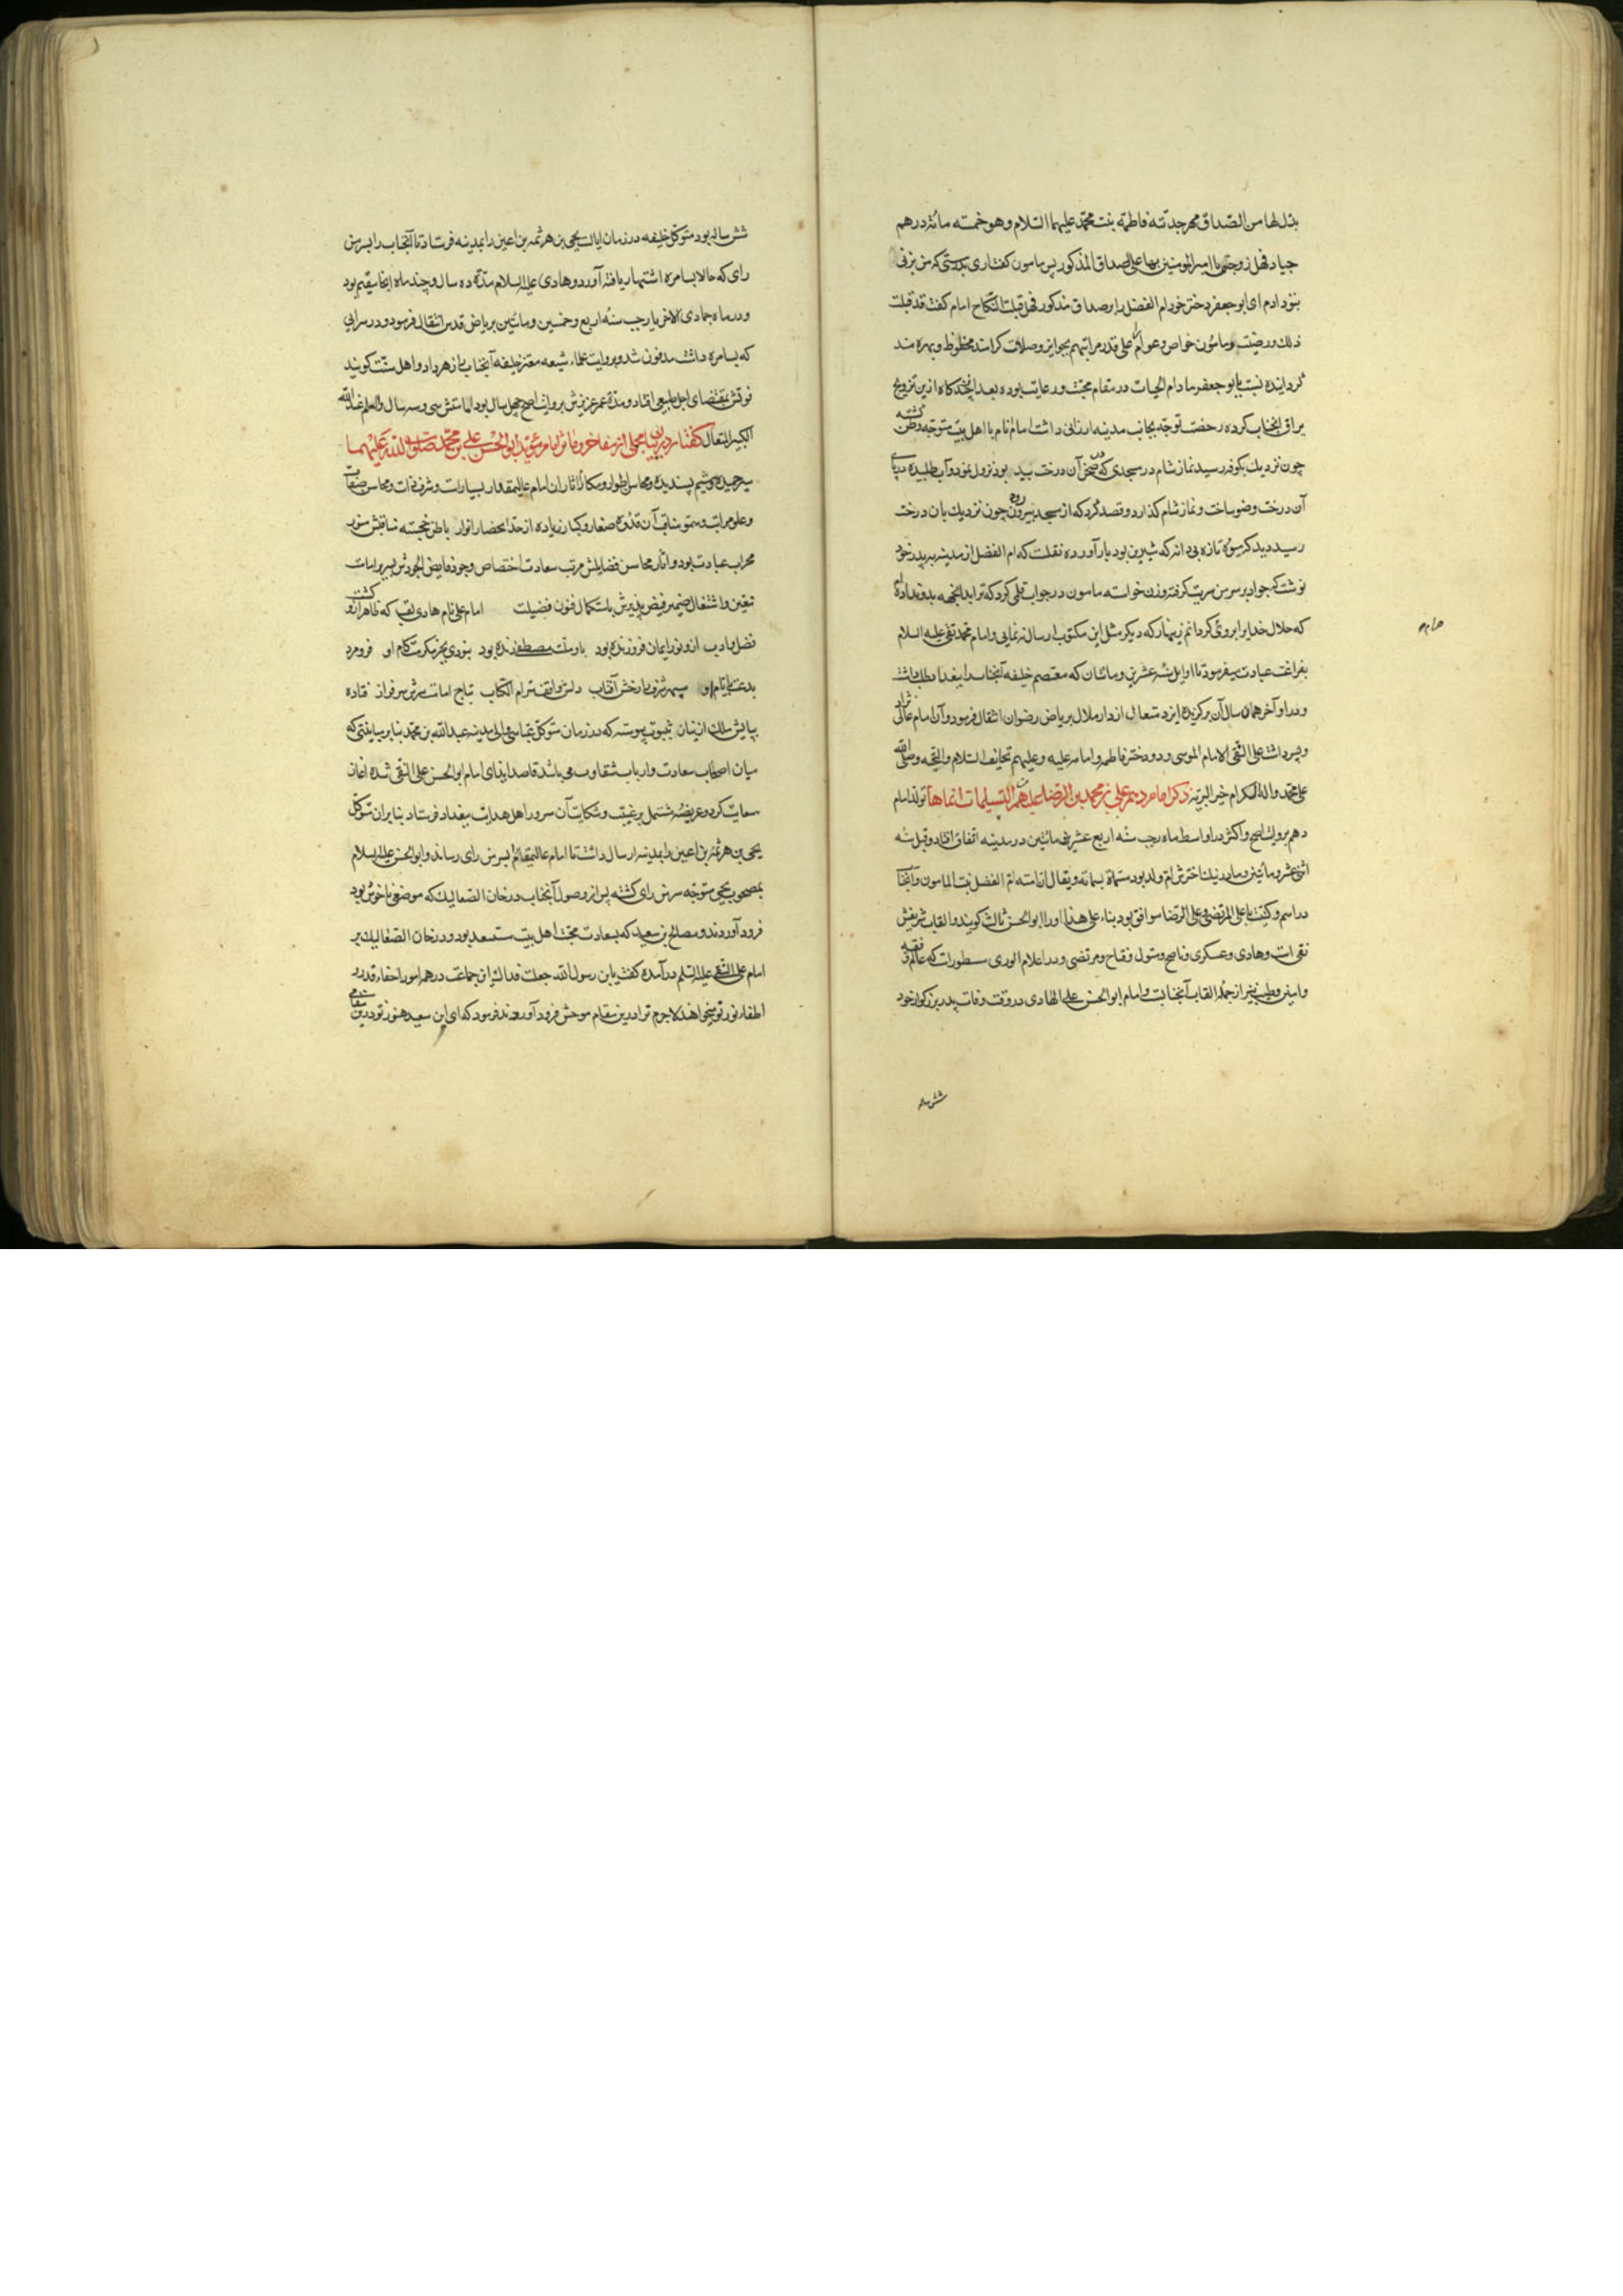 بذل لها من الصداق مهر جدته فاطمه بنت محمد علیهما السلام و هو خمسه مائة درهم
جیاد فهل زوجتنی یا امیر المومنین بها علی الصداق المذکور پس مامون گفت اری بدرستی که من بزنی
بتو دادم ای ابو جعفر دختر خود ام الفضل را بر صداق مذکور فهل قبلت النکاح امام گفت قد قبلت
ذلک و رضیت و مامون خواص و عوام را علی قدر مراتبهم بجوایز و صلات کرامند محظوظ و بهره مند
گردانیده نسبت با ابو جعفر مادام الحیات در مقام محبت و رعایت بوده بعد از چندگاه ازین تزویج
یراق انجناب کرده رخصت توجه بجانب مدینه ارزانی داشت امام انام با اهل بیت متوجه وطن گشته
چون نزدیک بکوفه رسید نماز شام در مسجدی که در صحن آن درخت بید بود نزول نمود و آب طلبیده در پای
آن درخت وضو ساخت و نماز شام گذارد و قصد کرد که از مسجد بیرون رود چون نزدیک بان درخت
رسید دید که میوه تازه بی دانه که شیرین بود بار آورده نقلست که ام الفضل از مدینه به پدر خود
نوشت که جواد بر سر من سریت گرفته و زن خواسته مامون در جواب قلمی کرد که ترا بدانجهه بدو نداده ام
که حلال خدایرا برو حرام گردانم زینهار که دیگر مثل این مکتوب ارسال ننمایی و امام محمد تقی علیه السلام
بفراغت عبادت میفرمود تا اوایل سنه عشرین و مائتان که معتصم خلیفه آنجناب را ببغداد طلب داشت
و در اواخر همان سال آن برگزیده ایزد متعال از دار ملال بریاض رضوان انتقال فرمود و آن امام عالی نژاد
دو پسر داشت علی النقی الامام الموسی و دو دختر فاطمه و امامه علیه و علیهم تحایف السلام و التحیه و صلی الله
علی محمد و اله الکرام خیر البریه ذکر امام دهم علی بن محمد بن الرضا علیهم التسلیمات انماها تولد امام
دهم بروایت اصح و اکثر در اواسط ماه رجب سنه اربع عشر و مائتین در مدینه اتفاق افتاد و قیل سنه
اثنی عشر و مائتین و مادر نیک اخترش ام ولد بود مسماة بسمانه و یقال ان امه ام الفضل بنت المامون و آنجناب
در اسم و کنیت با علی المرتضی و علی الرضا موافق بود بناء علی هذا او را ابو الحسن ثالث گویند و القاب شریفش
نقی است و هادی و عسکری و ناصح و متوکل و فتاح و مرتضی و در اعلام الوری مسطورست که عالم و فقیه
و امین و طیب نیز از جمله القاب آنجنابست و امام ابو الحسن علی الهادی در وقت وفات پدر بزرگوار خود
شش ساله
حرام
شش ساله بود متوکل خلیفه در زمان ایالت یحیی بن هرثمه بن اعین را بمدینه فرستاد تا آنجناب را بسرمن
رای که حالا بسامره اشتهار یافته آورد و هادی علیه السلام مدة ده سال و چند ماه انجا مقیم بود
و در ماه جمادی الاخر یا رجب سنه اربع و خمسین و مائتین بریاض قدس انتقال فرمود و در سرایی
که بسامره داشت مدفون شد و بروایت علماء شیعه معتز خلیفه آنجناب را زهر داد و اهل سنت گویند
فوتش بمقتضای اجل طبیعی افتاد و مدة عمر عزیزش بروایت اصح چهل سال بود امامتش سی و سه سال و العلم عند الله
الکبیر المتعال گفتار در بیان مجملی از مفاخر و ماثر امام مؤید ابو الحسن علی بن محمد صلوات الله علیهما
سیر حمیده و شیم پسندیده و محاسن اطوار و مکارم اثار ان امام عالیمقدار بسیارست و شرف ذات و محاسن صفات
و علو مراتب و سمو مناقب آن قدوه صغار و کبار زیاده از حد احصار انوار باطن خجسته مناقبش منور
محراب عبادت بود و اثار محاسن فضایلش مرتب سعادت اختصاص وجود فایض الجودش بسریر امامت
تعیین و اشتغال ضمیر فیض پذیرش باستکمال فنون فضیلت امام علی نام هادی لقب که ظاهر ازو گشت
فضل و ادب ازو نور ایمان فروزنده بود بارملت مصطفی زنده بود نبودی بجز مکرمت کام او فرو مرد
بدعت بایام او سپهر شرف را رخش آفتاب دلش واقف سر ام الکتاب بتاج امامت سرش سرفراز فتاده
بپایش ملک از نیاز بثبوت پیوسته که در زمان متوکل عباسی والی مدینه عبدالله بن محمد بنابر مباینتی که
میان اصحاب سعادت و ارباب شقاوت می باشد قاصد ایذای امام ابو الحسن علی النقی شده اغاز
سعایت کرد و عریضه مشتمل بر غیبت و شکایت آن سرور اهل هدایت ببغداد فرستاد بنابران متوکل
یحیی بن هرثمه بن اعین را بمدینه ارسال داشت تا امام عالیمقام را بسرمن رای رساند و ابو الحسن علیه السلام
بمصحوب یحیی متوجه سرمن رای گشته پس از وصول آنجناب در خان الصعالیک که موضعی ناخوش بود
فرود آوردند و صالح بن سعید که بسعادت محبت اهل بیت مستسعد بود در خان الصعالیک بر
امام علی النقی علیه السلم در آمده گفت یابن رسول الله جعلت فداک این جماعت در همه امور اخفاء قدر و
اطفاء نور تو میخواهند لاجرم ترا درین مقام موحش فرود آوردند فرمود که ای ابن سعید هنوز تو درین مقامی